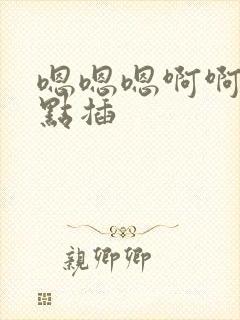 嗯嗯嗯啊啊
點插
親卿卿